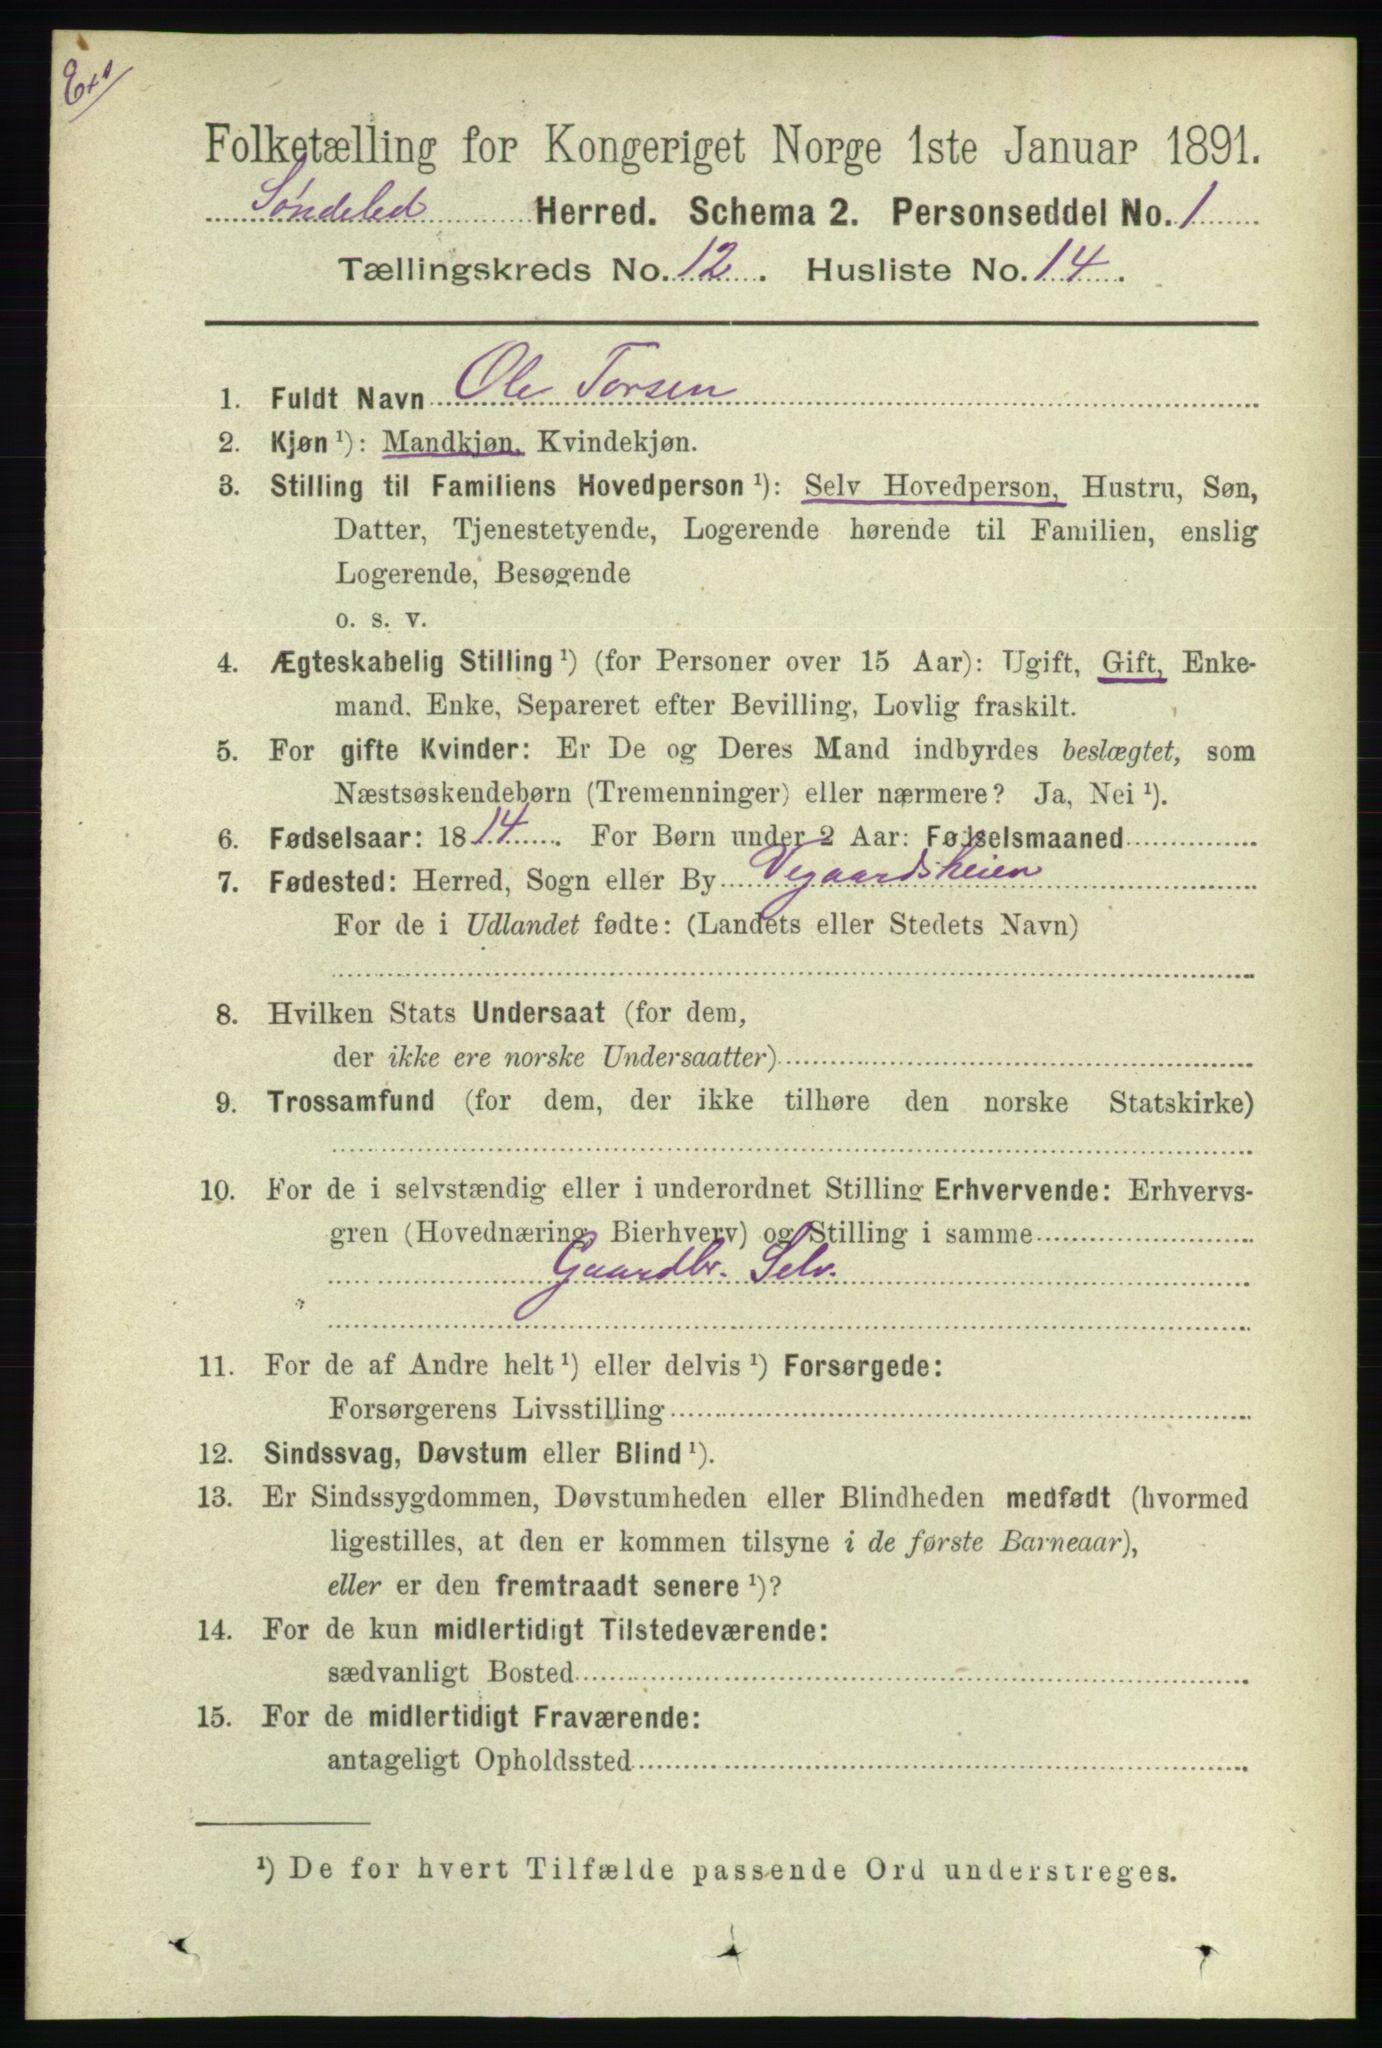 Folketælling for Kongeriget Norge 1ste Januar 1891.
Søndeled Herred. Schema 2. Personseddel No. 1
Tællingskreds No. 12. Husliste No. 14.
1. Fuldt Navn Ole Torsen
2. Kjøn ¹): Mandkjøn, Kvindekjøn.
3. Stilling til Familiens Hovedperson ¹): Selv Hovedperson, Hustru, Søn,
Datter, Tjenestetyende, Logerende hørende til Familien, enslig
Logerende, Besøgende
o. s. v.
4. Ægteskabelig Stilling ¹) (for Personer over 15 Aar): Ugift, Gift, Enke-
mand, Enke, Separeret efter Bevilling, Lovlig fraskilt.
5. For gifte Kvinder: Er De og Deres Mand indbyrdes beslægtet, som
Næstsøskendebørn (Tremenninger) eller nærmere? Ja, Nei ¹).
6. Fødselsaar: 1814. For Børn under 2 Aar: Fødselsmaaned
7. Fødested: Herred, Sogn eller By Vegaardsheien
For de i Udlandet fødte: (Landets eller Stedets Navn)
8. Hvilken Stats Undersaat (for dem,
der ikke ere norske Undersaatter)
9. Trossamfund (for dem, der ikke tilhøre den norske Statskirke)
10. For de i selvstændig eller i underordnet Stilling Erhvervende: Erhvervs-
gren (Hovednæring, Bierhverv) og Stilling i samme
Gaardbr. Selv.
11. For de af Andre helt ¹) eller delvis ¹) Forsørgede:
Forsørgerens Livsstilling
12. Sindssvag, Døvstum eller Blind ¹).
13. Er Sindssygdommen, Døvstumheden eller Blindheden medfødt (hvormed
ligestilles, at den er kommen tilsyne i de første Barneaar),
eller er den fremtraadt senere ¹)?
14. For de kun midlertidigt Tilstedeværende:
sædvanligt Bosted
15. For de midlertidigt Fraværende:
antageligt Opholdssted
¹) De for hvert Tilfælde passende Ord understreges.